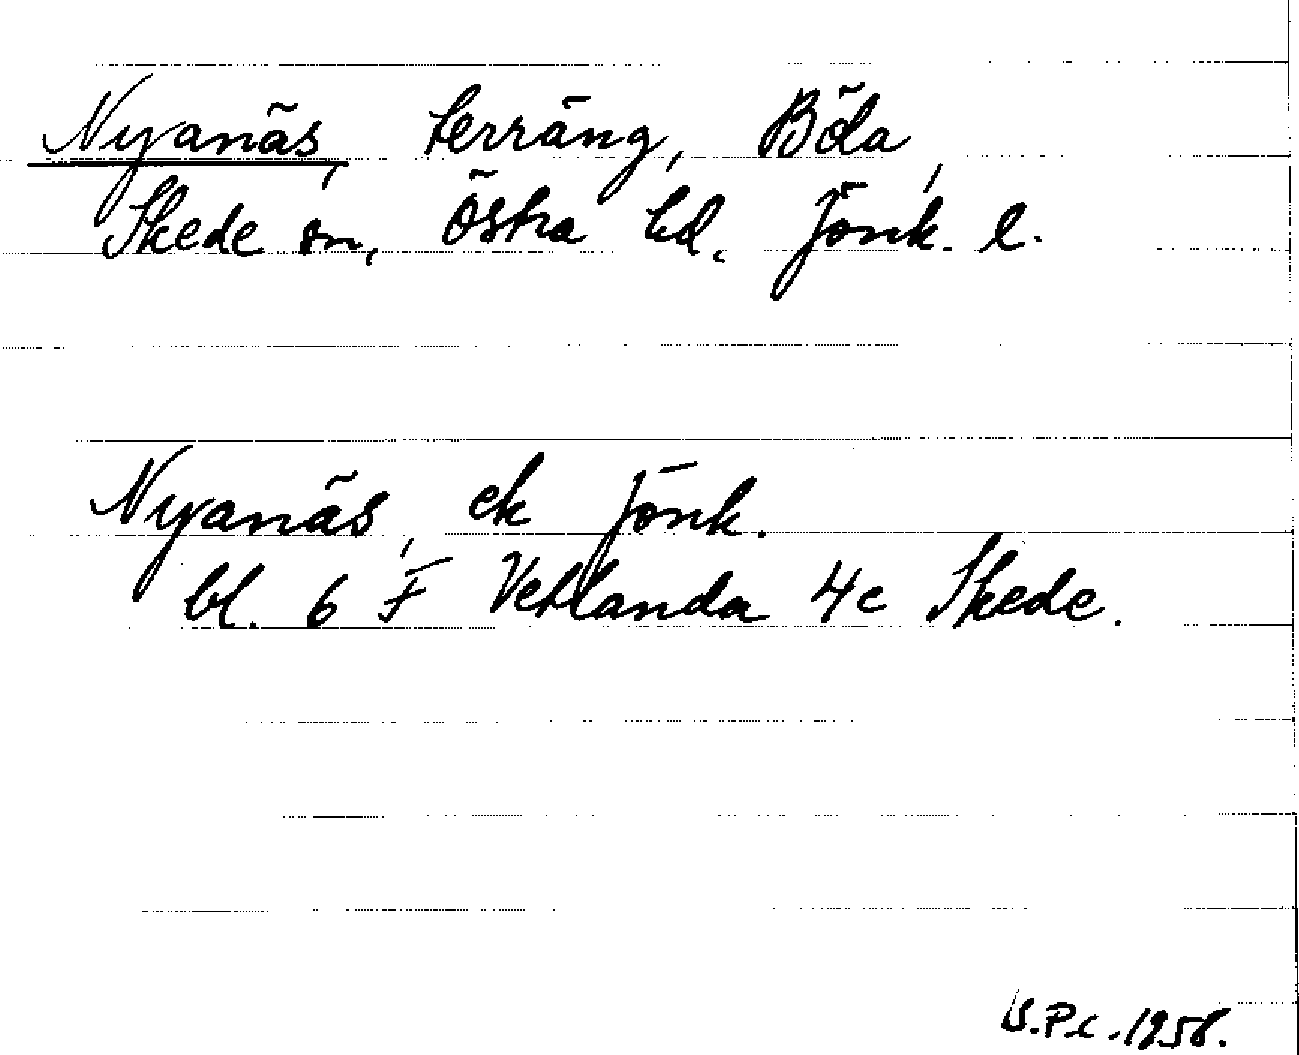 Nyanäs, terräng, Böla,
Skede sn, Östra hd. Jönk. l.
Nyanäs, ek Jönk.
bl. 6 F Vetlanda 4c Skede.
1958.